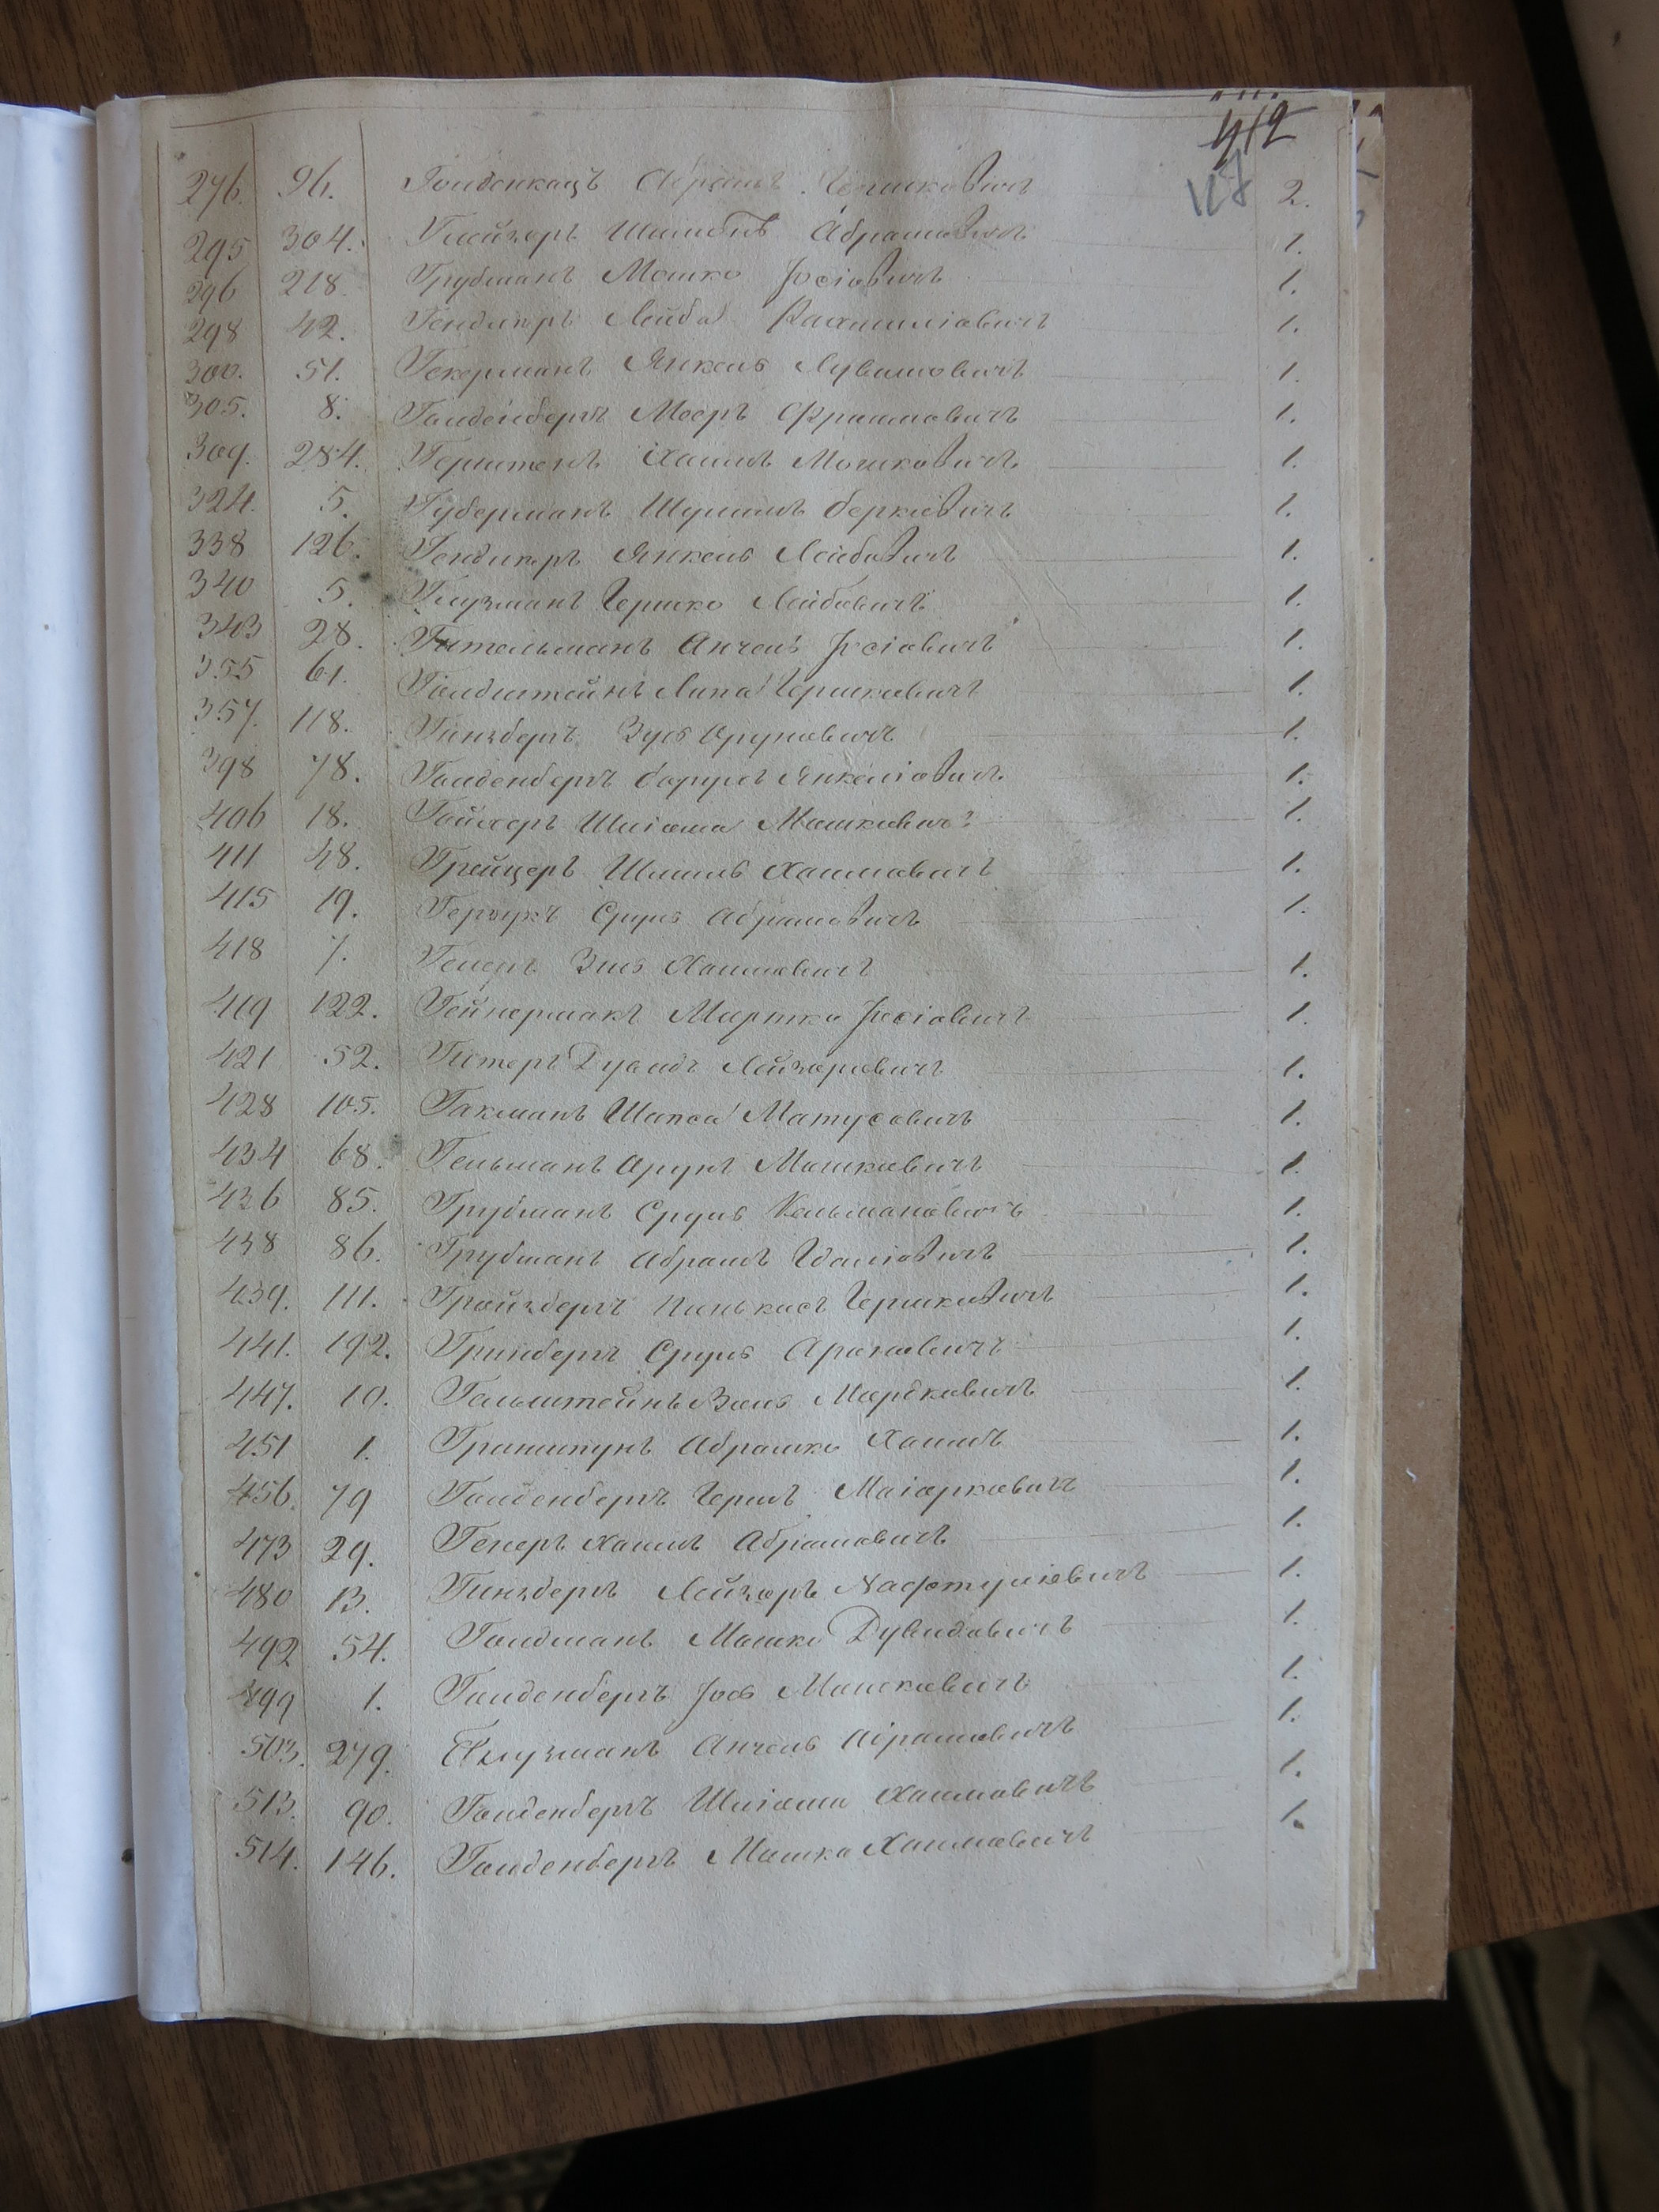 412
118
276. 96. Голденкацъ Абрамъ Гершковичъ 2.
295 304. Глайзеръ Абрамовичъ 1.
296 218. Грубманъ Мошко Іосіовичъ 1.
298 42. Гендлеръ Лейба 1.
300. 51. Гекерманъ Янкель 1.
305. 8. Голденбергъ Мееръ Фроимовичъ 1.
309. 284. Герштенъ Хаимъ Мошковичъ 1.
324. 5. Губерманъ Шулимъ Берковичъ 1.
338 126. Гендлеръ Янкель Лейбовичъ 1.
340 5. Глузманъ Гершко Лейбовичъ 1.
343 28. Гительманъ Анчель Іосіовичъ 1.
355 61. Голдштейнъ Липа Гершковичъ 1.
357. 118. Гинзбергъ Зусь Аруновичъ 1.
398 78. Голденбергъ Борухъ Янкеліовичъ 1.
406 18. Гойхеръ Шліома Мошковичъ 1.
411 48. Грейцеръ Шмиль Хаимовичъ 1.
415 19. Сруль Абрамовичъ 1.
418 7. Хаимовичъ 1.
419 122. Гейнерманъ Мортко Іосіовичъ 1.
421 52. Дувидъ Лейзеровичъ 1.
428 105. Гакманъ Шапса Матусовичъ 1.
434 68. Гельманъ Арунъ Мошковичъ 1.
436 85. Грубманъ Сруль Кельмановичъ 1.
438 86. Грубманъ Абрамъ 1.
439. 111. Гройзбергъ Пинькасъ Гершковичъ 1.
441. 192. Гринбергъ Сруль Ароновичъ 1.
447. 10. Гольштейнъ Мордковичъ 1.
451 1. Абрамко Хаимъ 1.
456. 79 Голденбергъ Гершъ Маіорковичъ 1.
473 29. Геперъ Хаимъ Абрамовичъ 1.
480 13. Гинзбергъ Лейзоръ Нафтуліовичъ 1.
492 54. Голдманъ Мошко Дувидовичъ 1.
499 1. Голденбергъ Іось Мошковичъ 1.
503. 279. Глузманъ Анчель Абрамовичъ 1.
513. 90. Голденбергъ Шліома Хаимовичъ 1.
514. 146. Голденбергъ Мошко Хаимовичъ 1.